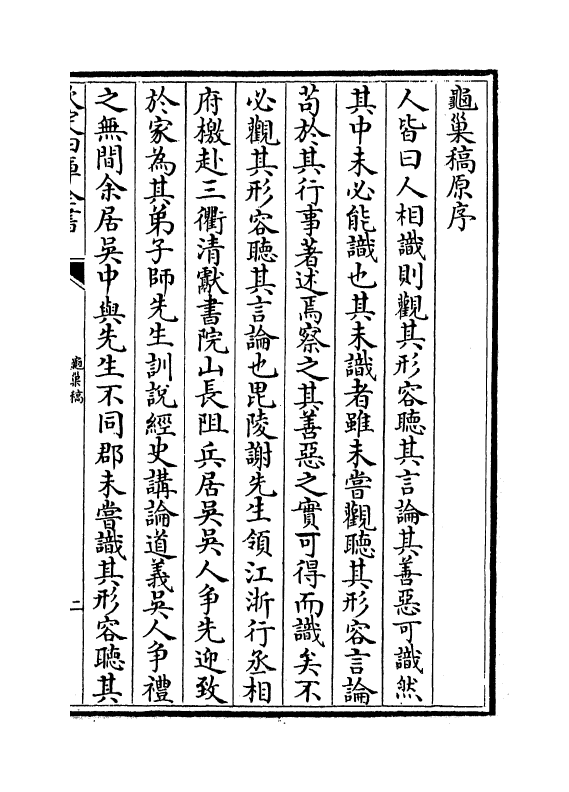 龜巢稿原序
人皆曰人相識則觀其形容聽其言論其善惡可識然
其中未必能識也其未識者雖未嘗觀聽其形容言論
苟於其行事著述焉察之其善惡之實可得而識矣不
必觀其形容聽其言論也毘陵謝先生領江浙行丞相
府檄赴三衢清獻書院山長阻兵居吳吳人争先迎致
於家為其弟子師先生訓説經史講論道義吳人争禮
之無間余居吳中與先生不同郡未嘗識其形容聽其
欽定四庫全書
龜巢稿
二